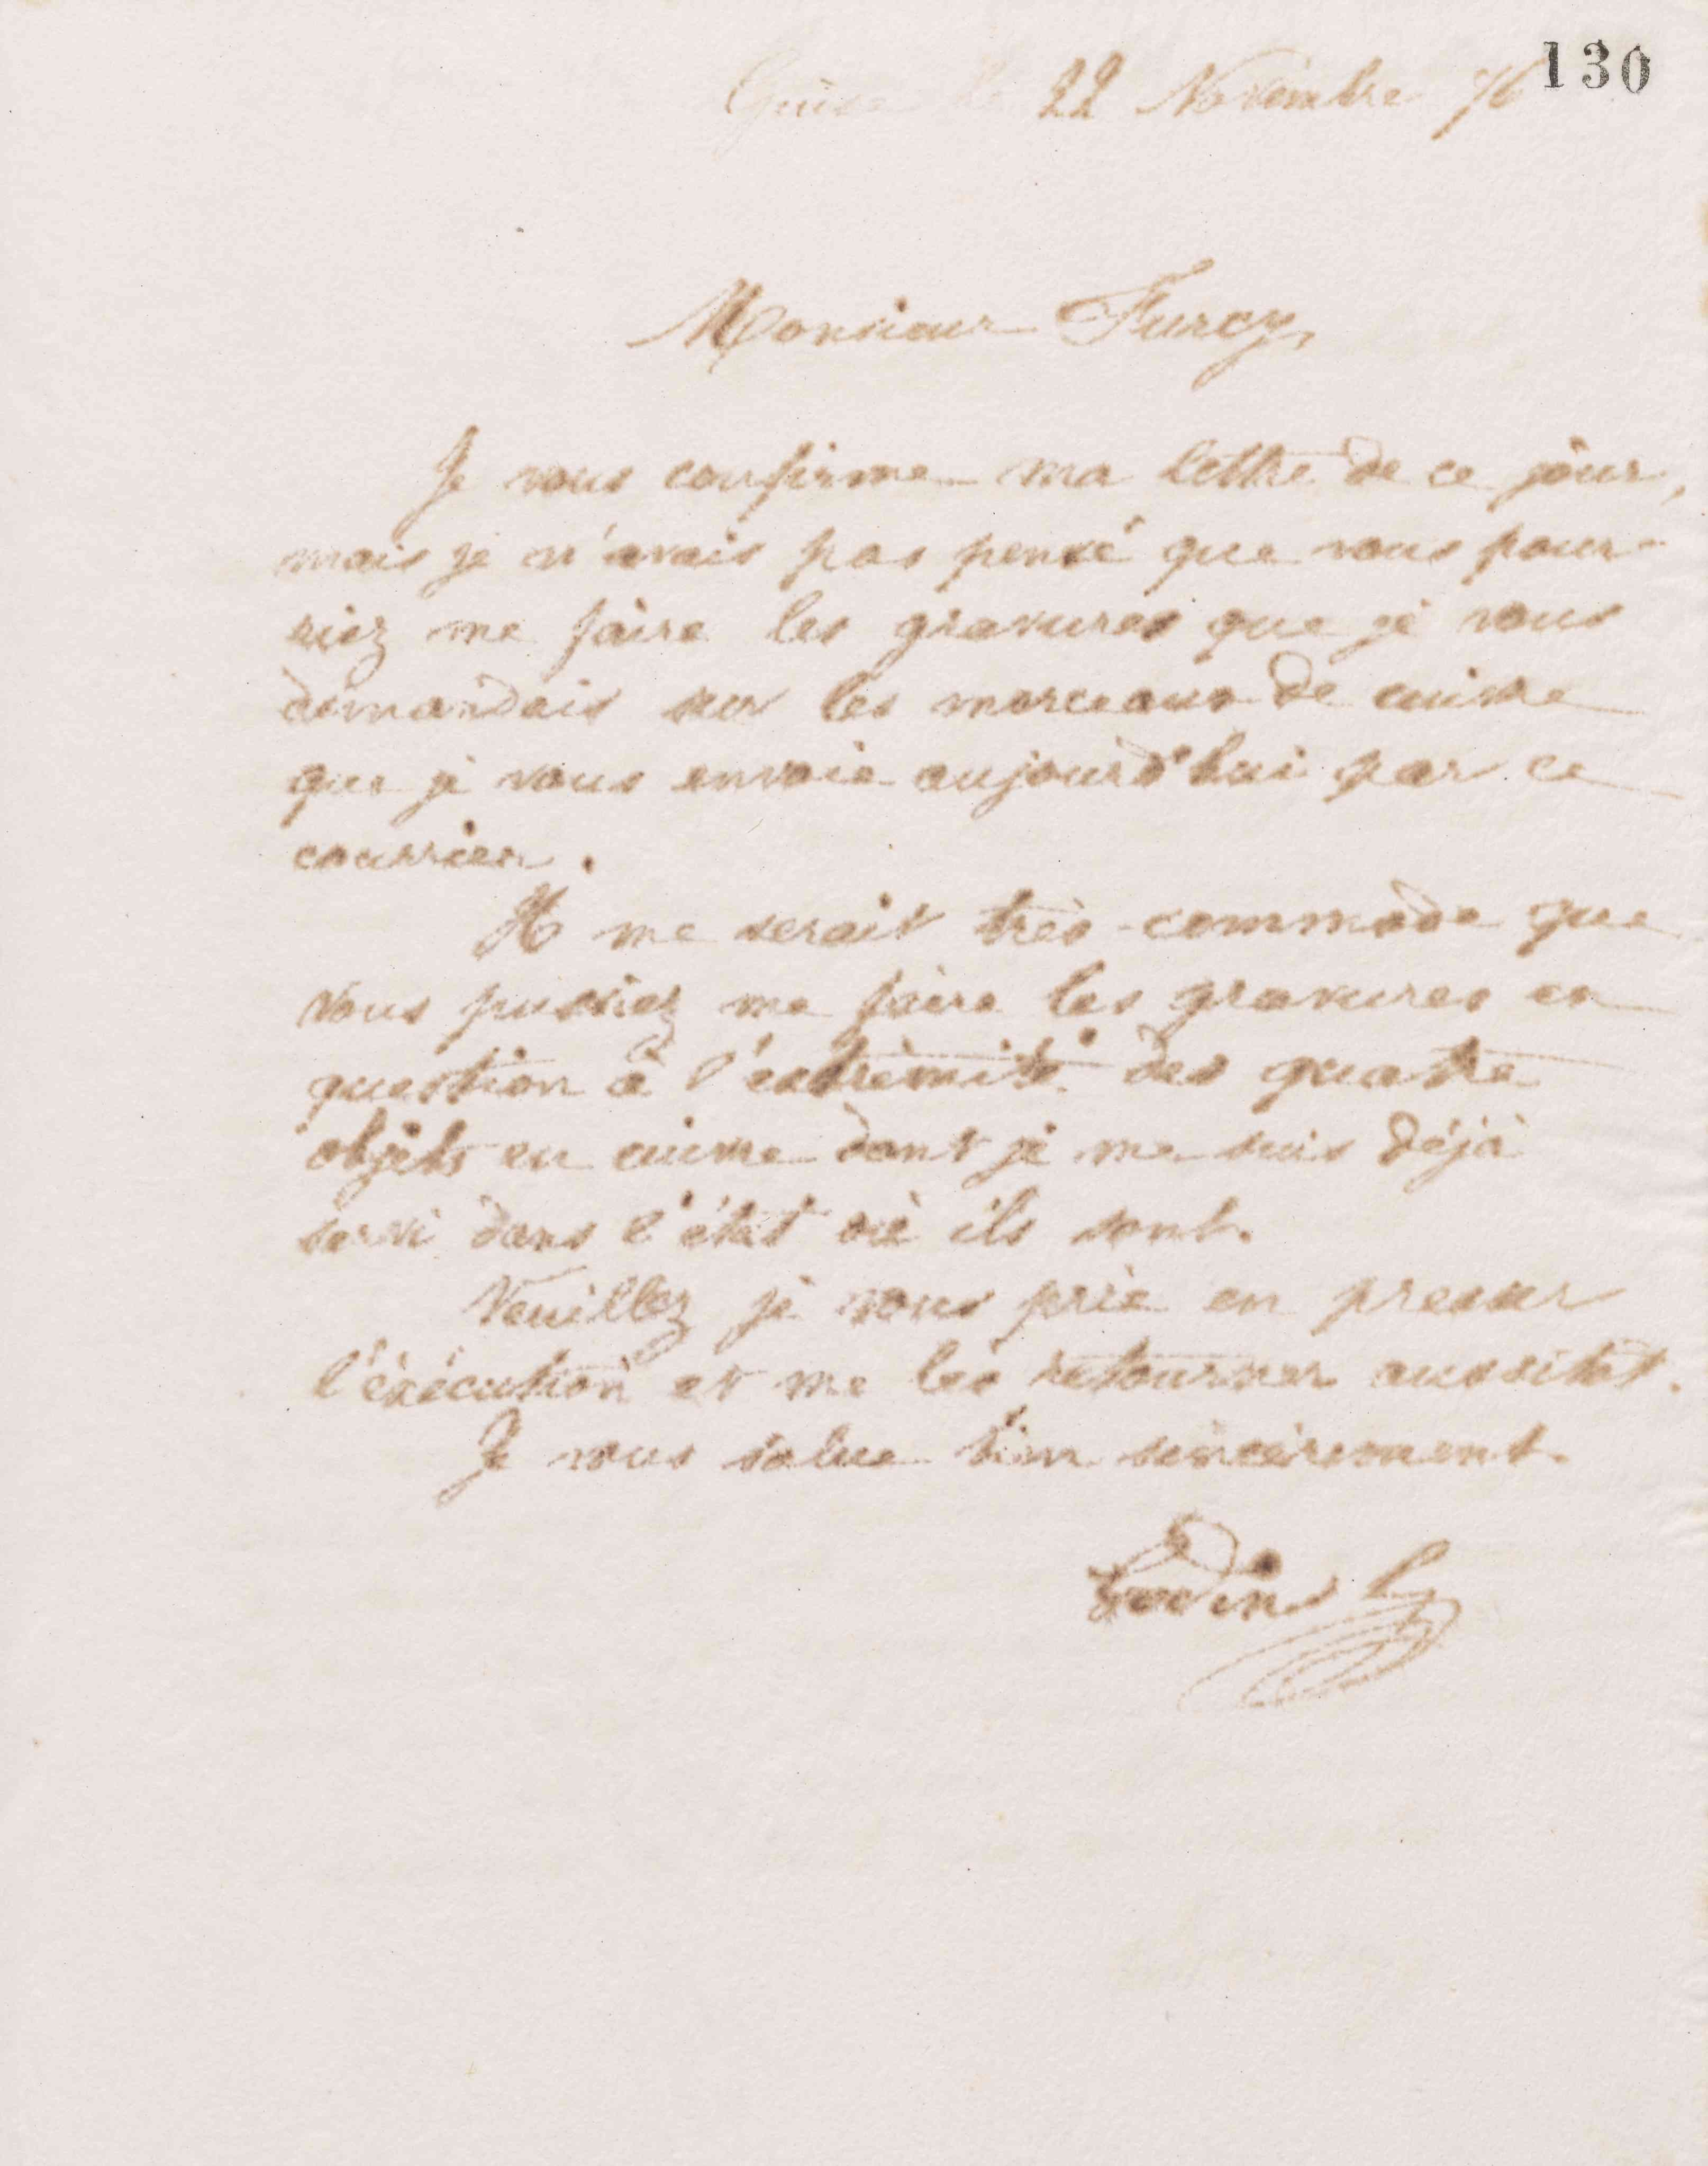 130
Guise le 22 Novembre 76
Monsieur Furcy,
Je vous confirme ma lettre de ce jour,
mais je n'avais pas pensé que vous pour-
riez me faire les gravures que je vous
demandais sur les morceaux de cuivre
que je vous envoie aujourd'hui par ce
courrier.
Il me serait très commode que
vous pussiez me faire les gravures en
question à l'extrémité des quatre
objets en cuivre dont je me suis déjà
servi dans l'état où ils sont.
Veuillez je vous prie en presser
l'exécution et me les retourner aussitôt.
Je vous salue bien sincèrement.
Godin